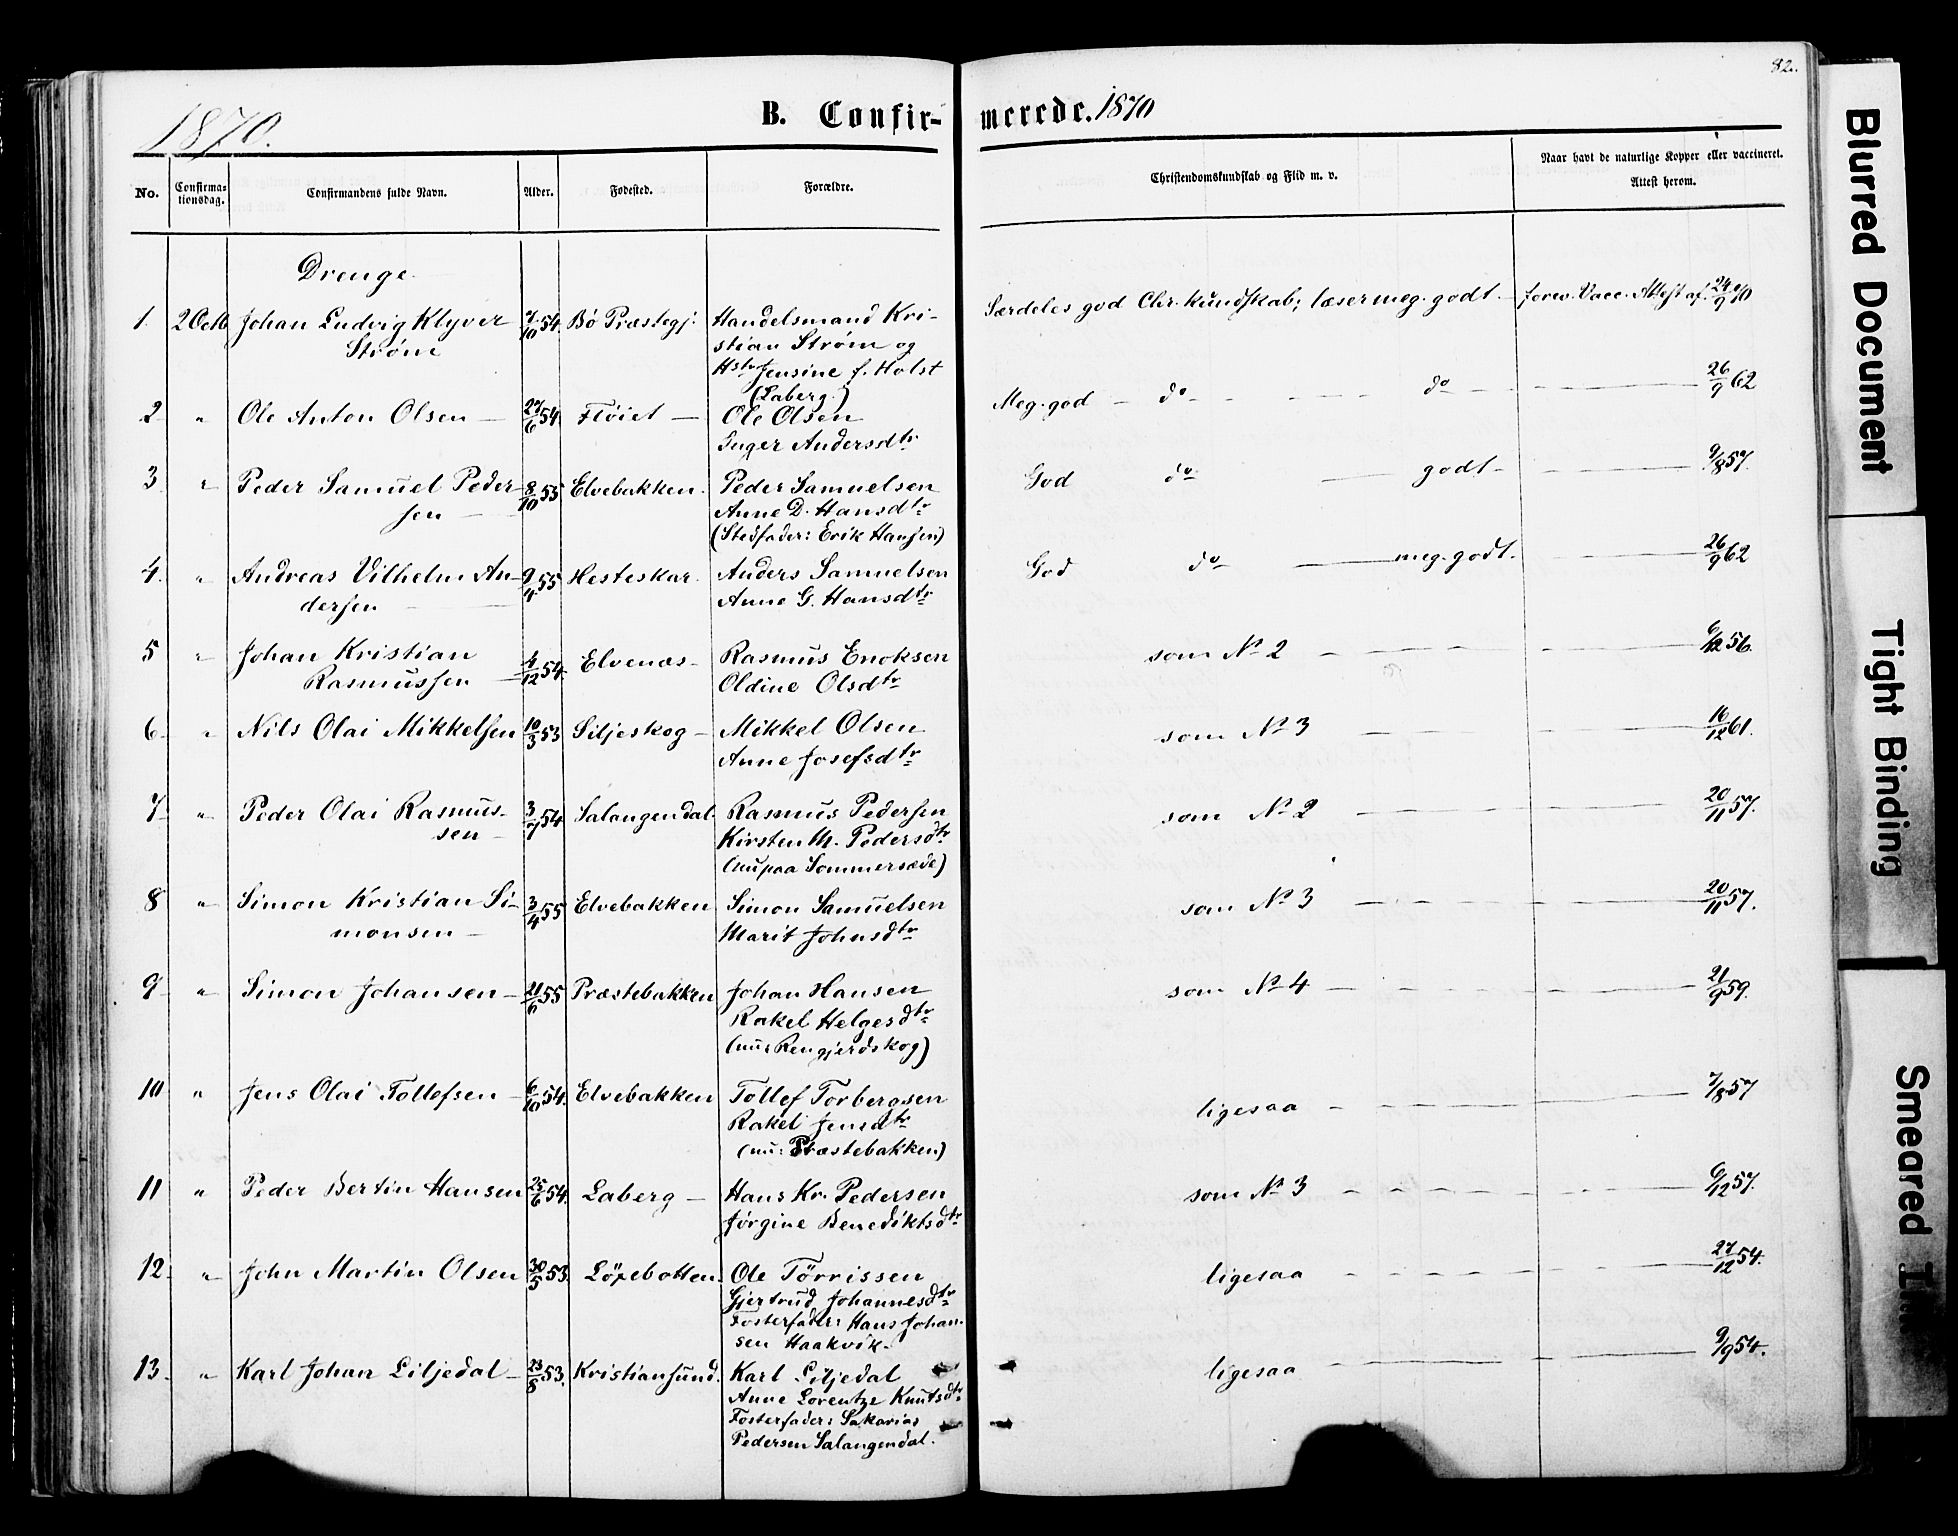 82.
1870.
B. Confir-
merede. 1870
No.
Confirma-
tionsdag.
Confirmandens fulde Navn.
Alder.
Fødested.
Forældre.
Christendomskundskab og Flid m. v.
Naar havt de naturlige Kopper eller vaccineret.
Attest herom.
Drenge
1. 2 Octb Johan Ludvig Klyver 7/10 54. Bø Præstegj. Handelsmand Kri- Særdeles god Chr. kundskab; læser meg. godt — forev. Vacc. Attest af 24/9 70
Strøm stian Strøm og
Hstr Jensine f. Holst
(Laberg.)
2 " Ole Anton Olsen — 27/6 54. Fløiet — Ole Olsen Meg. god — do — do — 26/9 62
Inger Andersdtr
3 " Peder Samuel Peder- 8/10 55 Elvebakken. Peder Samuelsen God do — godt — 9/8 57.
sen — Anne D. Hansdtr
(Stedfader: Erik Hansen)
4. " Andreas Vilhelm An- 9/4 55 Hesteskar. Anders Samuelsen God do — meg. godt. — 26/9 62
dersen — Anne G. Hansdtr
5 " Johan Kristian 4/12 54. Elvenæs — Rasmus Enoksen som No 2 — 6/12 56.
Rasmussen — Oldine Olsdtr
6 " Nils Olai Mikkelsen 10/3 53 Siljeskog — Mikkel Olsen som No 3 — 16/12 61.
Anne Josefsdtr
7 " Peder Olai Rasmus- 3/7 54 Salangendal Rasmus Pedersen som No 2 — 20/11 57.
sen — Kirsten M. Pedersdtr
(nu paa Sommersæde)
8 " Simon Kristian Si- 3/4 55 Elvebakken Simon Samuelsen som No 3 — 20/11 57.
monsen — Marit Johnsdtr
9 " Simon Johansen — 21/6 55 Præstebakken Johan Hansen som No 4 — 21/9 59.
Rakel Helgesdtr
(nu: Rengjerdskog)
10 " Jens Olai Tollefsen — 6/10 54. Elvebakken Tollef Torbergsen ligesaa — 7/8 57
Rakel Jensdtr
(nu: Præstebakken)
11 " Peder Bertin Hansen 25/6 54. Laberg — Hans Kr. Pedersen som No 3 — 6/12 57.
Jørgine Benediktsdtr
12. " John Martin Olsen 30/5 53. Løxebotten. Ole Tørrissen ligesaa — 27/12 54.
Gjertrud Johannesdtr
Fosterfader: Hans Johan-
sen Haakvik.
13. " Karl Johan Liljedal — 23/8 53. Kristiansund. Karl Liljedal ligesaa — 9/9 54.
Anne Lorentze Knutsdtr
Fosterfader: Sakarias
Pedersen Salangendal.
Blurred Document
Tight Binding
Smeared